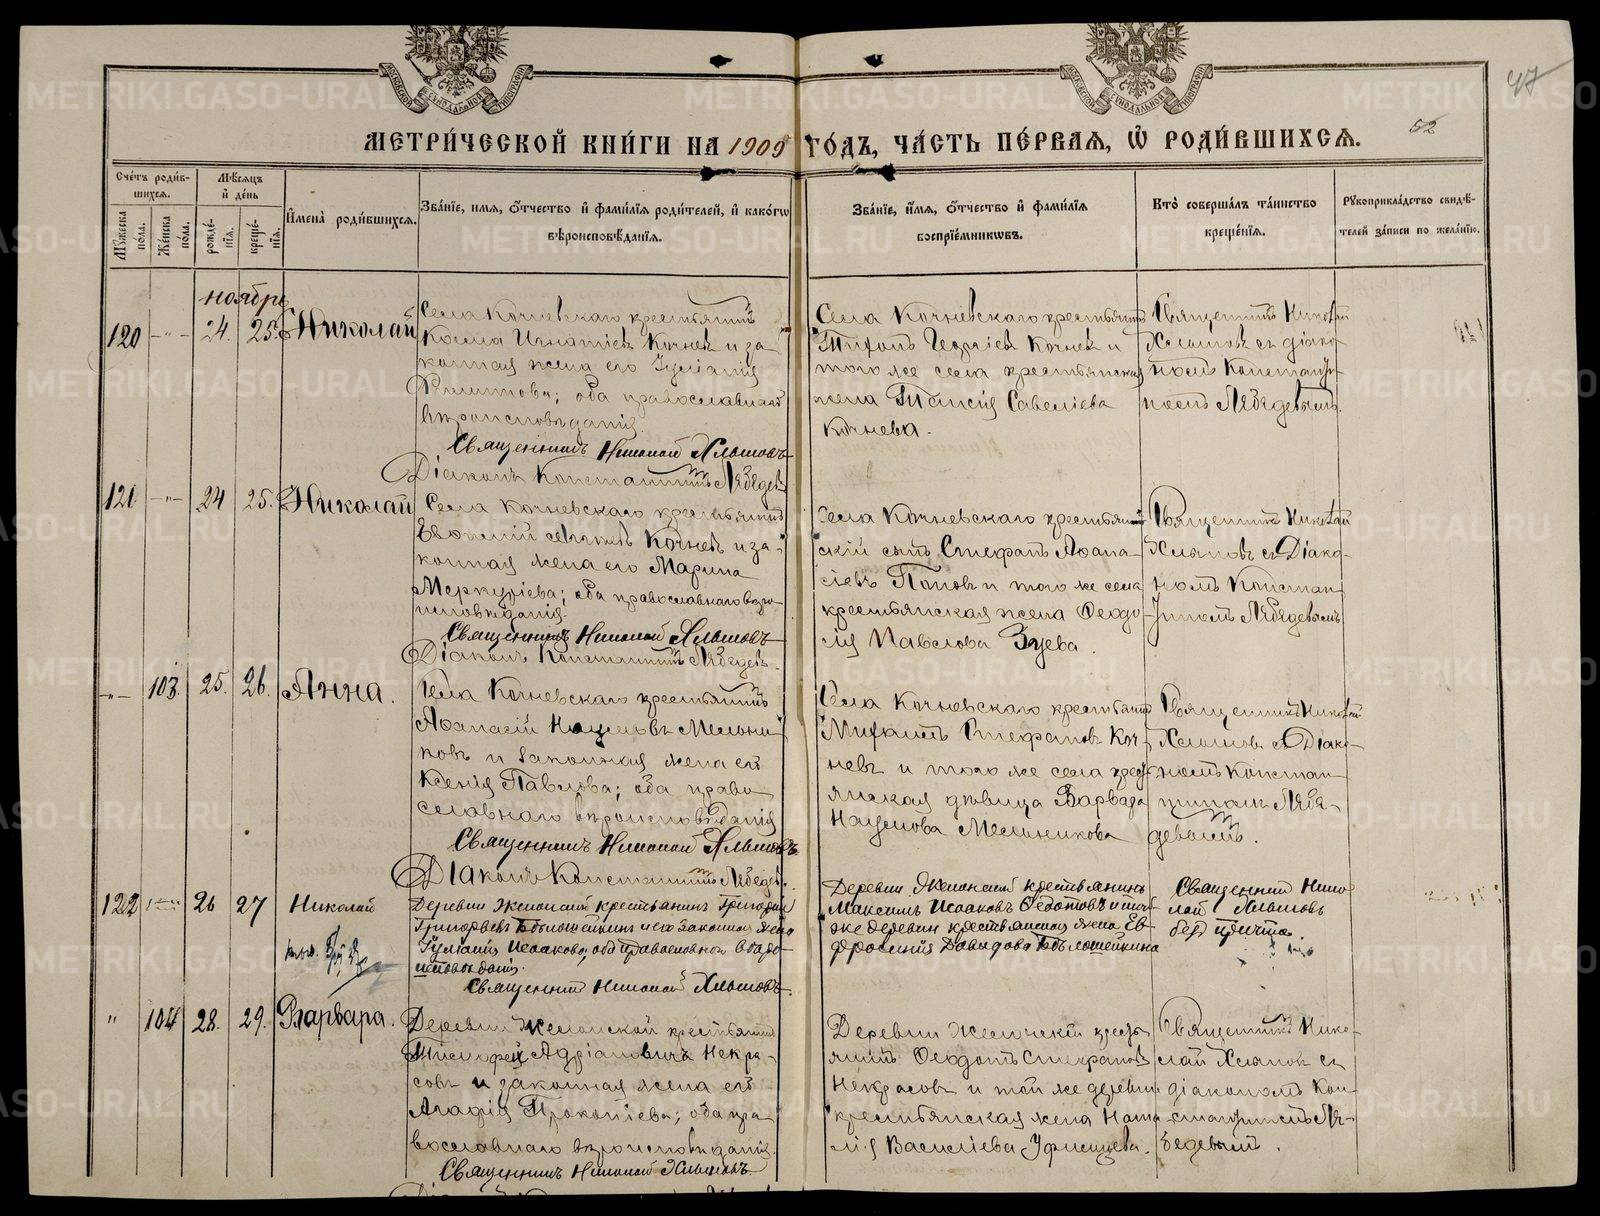 МЕТРИ́ЧЕСКОЙ КНИ́ГИ НА 1909 ГО́ДЪ, ЧА́СТЬ ПЕ́РВАЯ, Ѡ РОДИ́ВШИХСЯ.
47
52
Сче́тъ роди́вшихся.
Мꙋ́жеска по́ла.
Же́нска по́ла.
Мѣ́сяцъ и де́нь
рожде́нїя.
креще́нїя.
И́мена̀ роди́вшихся.
Зва́нїе, и́мя, о́тчество и фами́лїя роди́телей, и како́гѡ
вѣроисповѣ́данїя.
Зва́нїе, и́мя, о́тчество и фами́лїя
воспрїе́мникѡвъ.
Кто̀ соверша́лъ та́инство
креще́нїя.
Рꙋкоприкла́дство свидѣ́-
телей за́писи по жела́нїю.
ноябрь
120 24. 25. Николай
Села Кочневскаго крестьянинъ
Косма Игнатіевъ Кочневъ и за
конная жена его Іуліанія
Филиппова; оба православнаго
вѣроисповѣданія.
Священникъ Николай
Діаконъ Константинъ Лебедевъ
Села Кочневскаго крестьянинъ
Тихонъ Георгіевъ Кочневъ и
того же села крестьянская
жена Таисія Савеліева
Кочнева.
Священникъ Николай
съ діако-
номъ Константи-
номъ Лебедевымъ.
121 24 25. Николай
Села Кочневскаго крестьянинъ
Евфимій Кочневъ и за-
конная жена его Марина
Меркуріева; оба православнаго вѣро
исповѣданія.
Священникъ Николай
Діаконъ Константинъ Лебедевъ.
Села Кочневскаго крестьян-
скій сынъ Стефанъ Афана-
сіевъ Поповъ и того же села
крестьянская жена Феодо-
сія Павлова Зуева.
Священникъ Николай
съ Діако-
номъ Констан-
тиномъ Лебедевымъ
103. 25. 26. Анна.
Села Кочневскаго крестьянинъ
Афанасій Наумовъ Мельни-
ковъ и законная жена его
Ксенія Павлова; оба право
славнаго вѣроисповѣданія
Священникъ Николай
Діаконъ Константинъ Лебедевъ.
Села Кочневскаго крестьянинъ
Никита Стефановъ Коч-
невъ и того же села крест
янская дѣвица Варвара
Наумова Мельникова
Священникъ Николай
съ Діако-
номъ Констан
тиномъ Лебе-
девымъ.
122 26 27 Николай
Деревни крестьянинъ Григорій
Григорьевъ Бѣлошейкинъ и его законная жена
Іуліанія Исаакова, оба православнаго вѣро
исповѣданія.
Священникъ Николай
Деревни крестьянинъ
Максимъ Исааковъ Федотовъ и той
же деревни крестьянская жена Ев-
фросинія Давидова Бѣлошейкина
Священникъ Нико
лай
безъ причта.
104 28. 29. Варвара.
Деревни крестьянинъ
Тимофей Адріановичъ Некра-
совъ и законная жена его
Агафія Прокопіева; оба пра
вославнаго вѣроисповѣданія.
Священникъ Николай
Деревни кресть
янинъ Феодотъ Стефановъ
Некрасовъ и той же деревни
крестьянская жена Ната
лія Василіева
Священникъ Нико-
лай съ
діакономъ Кон-
стантиномъ Ле-
бедевымъ.
METRIKI.GASO-URAL.RU